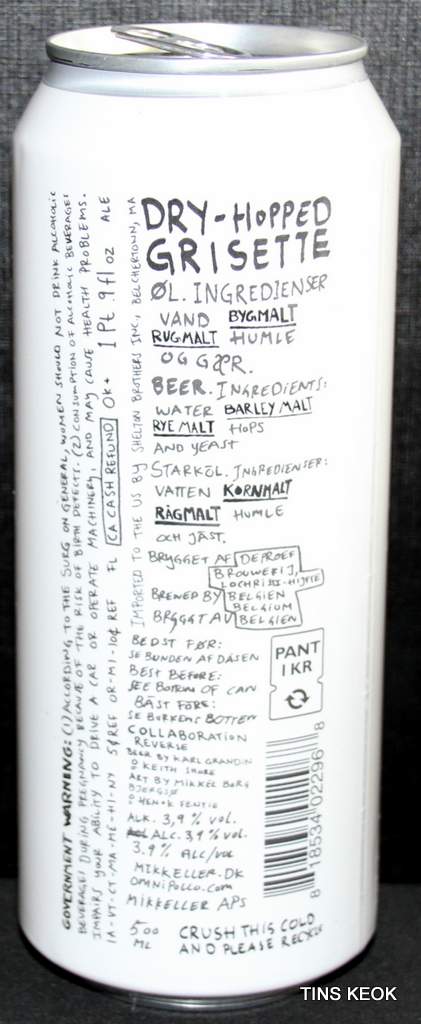 GOVERNMENT WARNING: (1) ACCORDING TO THE SURG ON GENERAL, WOMEN SHOULD NOT DRINK ALCOHOLIC
BEVERAGES DURING PREGNANCY BECAUSE OF THE RISK OF BIRTH DEFECTS. (2) CONSUMPTION OF ALCOHOLIC BEVERAGES
IMPAIRS YOUR ABILITY TO DRIVE A CAR OR OPERATE MACHINERY, AND MAY CAUSE HEALTH PROBLEMS.
IA-VT-CT-MA-ME-HI-NY 5¢REF OR-MI-10¢ REF FL CA CASH REFUND OK+ 1 Pt .9 fl oz ALE
IMPORTED TO THE US BY SHELTON BROTHERS INC., BELCHERTOWN, MA
DRY-HOPPED
GRISETTE
ØL. INGREDIENSER
VAND BYGMALT
RUGMALT HUMLE
OG GÆR.
BEER. INGREDIENTS:
WATER BARLEY MALT
RYE MALT HOPS
AND YEAST
STARKÖL. INGREDIENSER:
VATTEN KORNMALT
RÅGMALT HUMLE
OCH JÄST.
BRYGGET AF DE PROEF
BROUWERIJ,
LOCHRISTI-HIJFTE
BREWED BY BELGIEN
BELGIUM
BRYGGT AV BELGIEN
BEDST FØR:
SE BUNDEN AF DÅSEN
BEST BEFORE:
SEE BOTTOM OF CAN
BÄST FÖRE:
SE BURKENS BOTTEN
PANT
1 KR
COLLABORATION
REVERSE
BEER BY KARL GRANDIN
& KEITH SHORE
ART BY MIKKEL BORG
BJERGSØ
& HENOK FENTIE
ALK. 3,9 % VOL.
ALC. 3,9 % VOL.
3.9 % ALC/VOL
MIKKELLER.DK
OMNIPOLLO.COM
MIKKELLER APS
8 18534 02296 8
500
ML
CRUSH THIS COLD
AND PLEASE RECYCLE
TINS KEOK